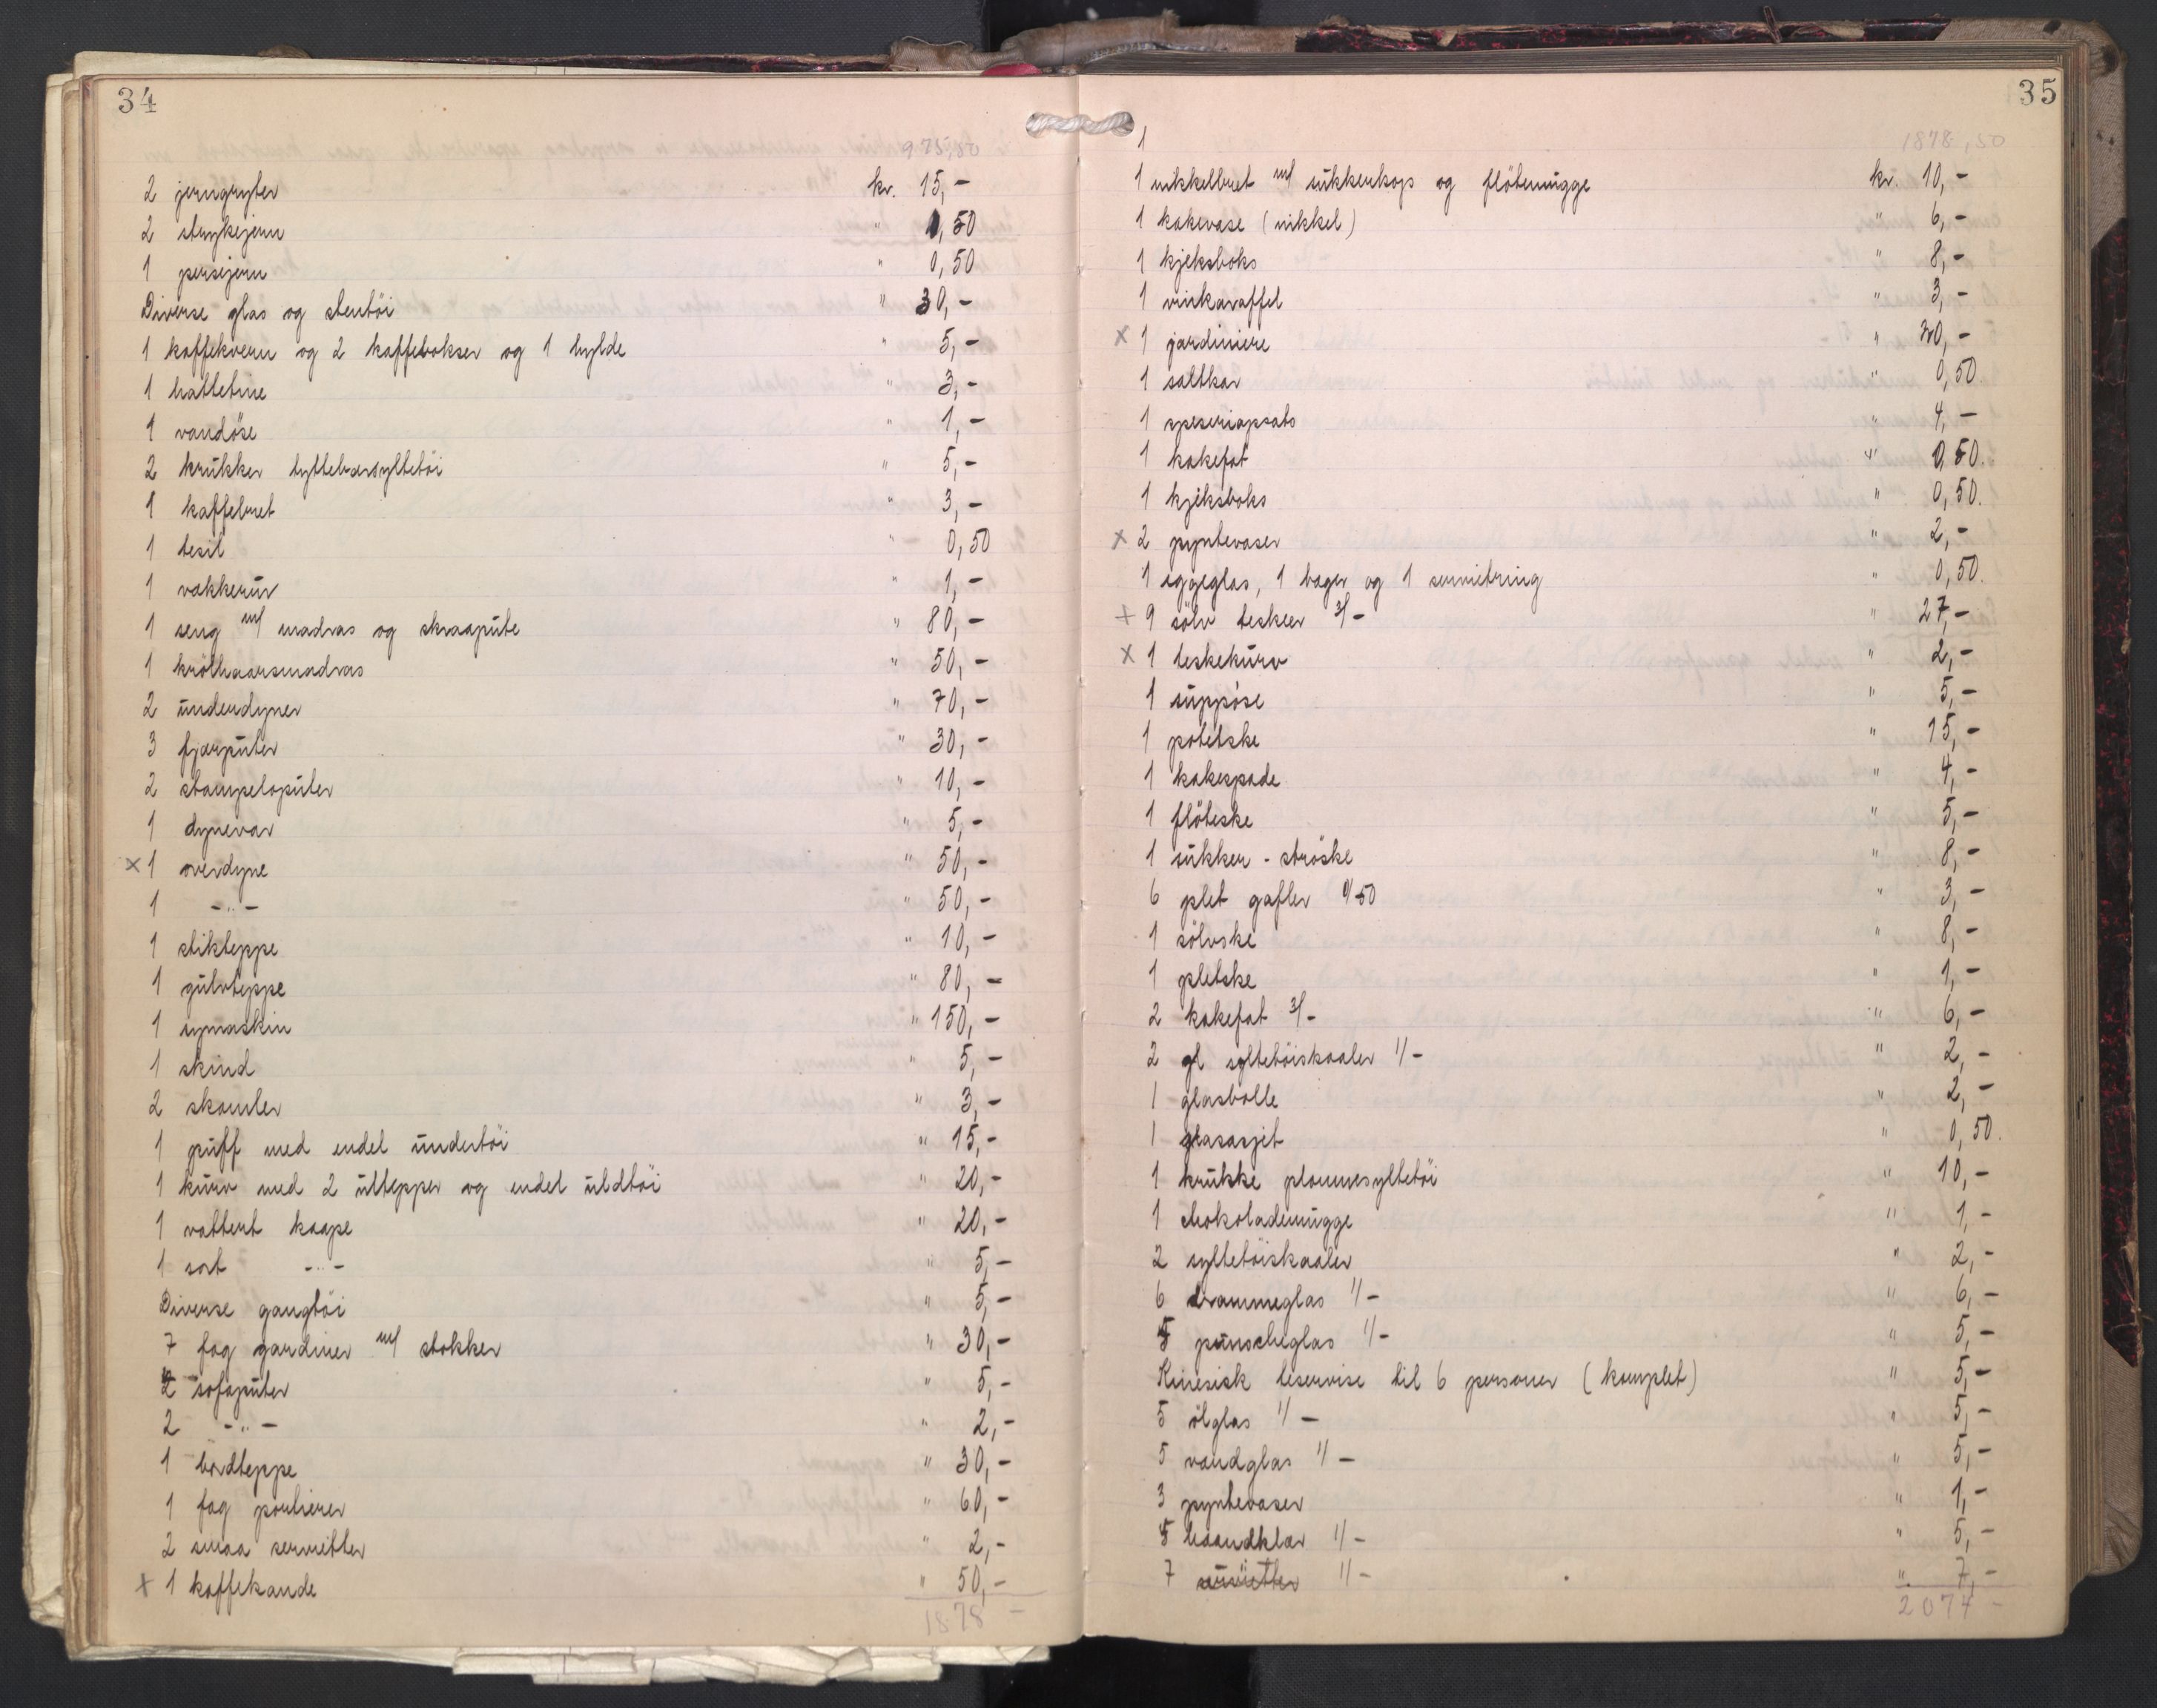 34
975,50
2 jerngryter kr. 15,-
2 strykejern " 1,50
1 persejern " 0,50
Diverse glas og stentöi " 30,-
1 kaffekvern og 2 kaffebokser og 1 hylde " 5,-
1 hattetine " 3,-
1 vandöse " 1,-
2 krukker tyttebærsyltetöi " 5,-
1 kaffebret " 3,-
1 tesil " - 0,50
1 vækkerur " 1,-
1 seng m/ madras og skraapute " 80,-
1 krölhaarsmadras " 50,-
2 underdyner " 70,-
3 fjærputer " 30,-
2 stampeloputer " 10,-
1 dynevar " 5,-
x 1 overdyne " 50,-
1 -"- " 50,-
1 stikteppe " 10,-
1 gulvteppe " 80,-
1 symaskin " 150,-
1 skind " 5,-
2 skamler " 3,-
1 puff med endel undertöi " 15,-
1 kurv med 2 ultepper og endel uldtöi " 20,-
1 vattert kaape " 20,-
1 sort -"- " 5,-
Diverse gangtöi " 5,-
7 fag gardiner m/ stokker " 30,-
2 sofaputer " 5,-
2 -"- " 2,-
1 bordteppe " 30,-
1 fag portierer " 60,-
2 smaa servietter " 2,-
x 1 kaffekande " 50,-
1878 -
35
1
1878,50
1 nikkelbret m/ sukkerkop og flötemugge kr. 10,-
1 kakevase (nikkel) " 6,-
1 kjeksboks " 8,-
1 vinkaraffel " 3,-
x 1 jardiniere " 30,-
1 saltkar " 0,50
1 speseriopsats " 4,-
1 kakefat " 0,50.
1 kjeksboks " 0,50.
x 2 pyntevaser " 2,-
1 eggeglas, 1 bæger og 1 serviettring " 0,50.
x 9 sölv teskeer 3/- " 27,-
x 1 teskekurv " 2,-
1 suppöse " 5,-
1 potetske " 15,-
1 kakespade " 4,-
1 flöteske " 5,-
1 sukker - ströske " 8,-
6 plet gafler 0/50 " 3,-
1 sölvske " 8,-
1 pletske " 1,-
2 kakefat 3/- " 6,-
2 gl syltetöiskaaler 1/- " 2,-
1 glasbolle " 2,-
1 glasasjet " 0,50.
1 krukke plommesyltetöi " 10,-
1 chokolademugge " 1,-
2 syltetöiskaaler " 2,-
6 drammeglas 1/- " 6,-
5 punscheglas 1/- " 5,-
Kinesisk teservise til 6 personer (komplet) " 5,-
5 ölglas 1/- " 5,-
5 vandglas 1/- " 5,-
3 pyntevaser " 1,-
5 haandklær 1/- " 5,-
7 servietter 1/- " 7,-
2074 -